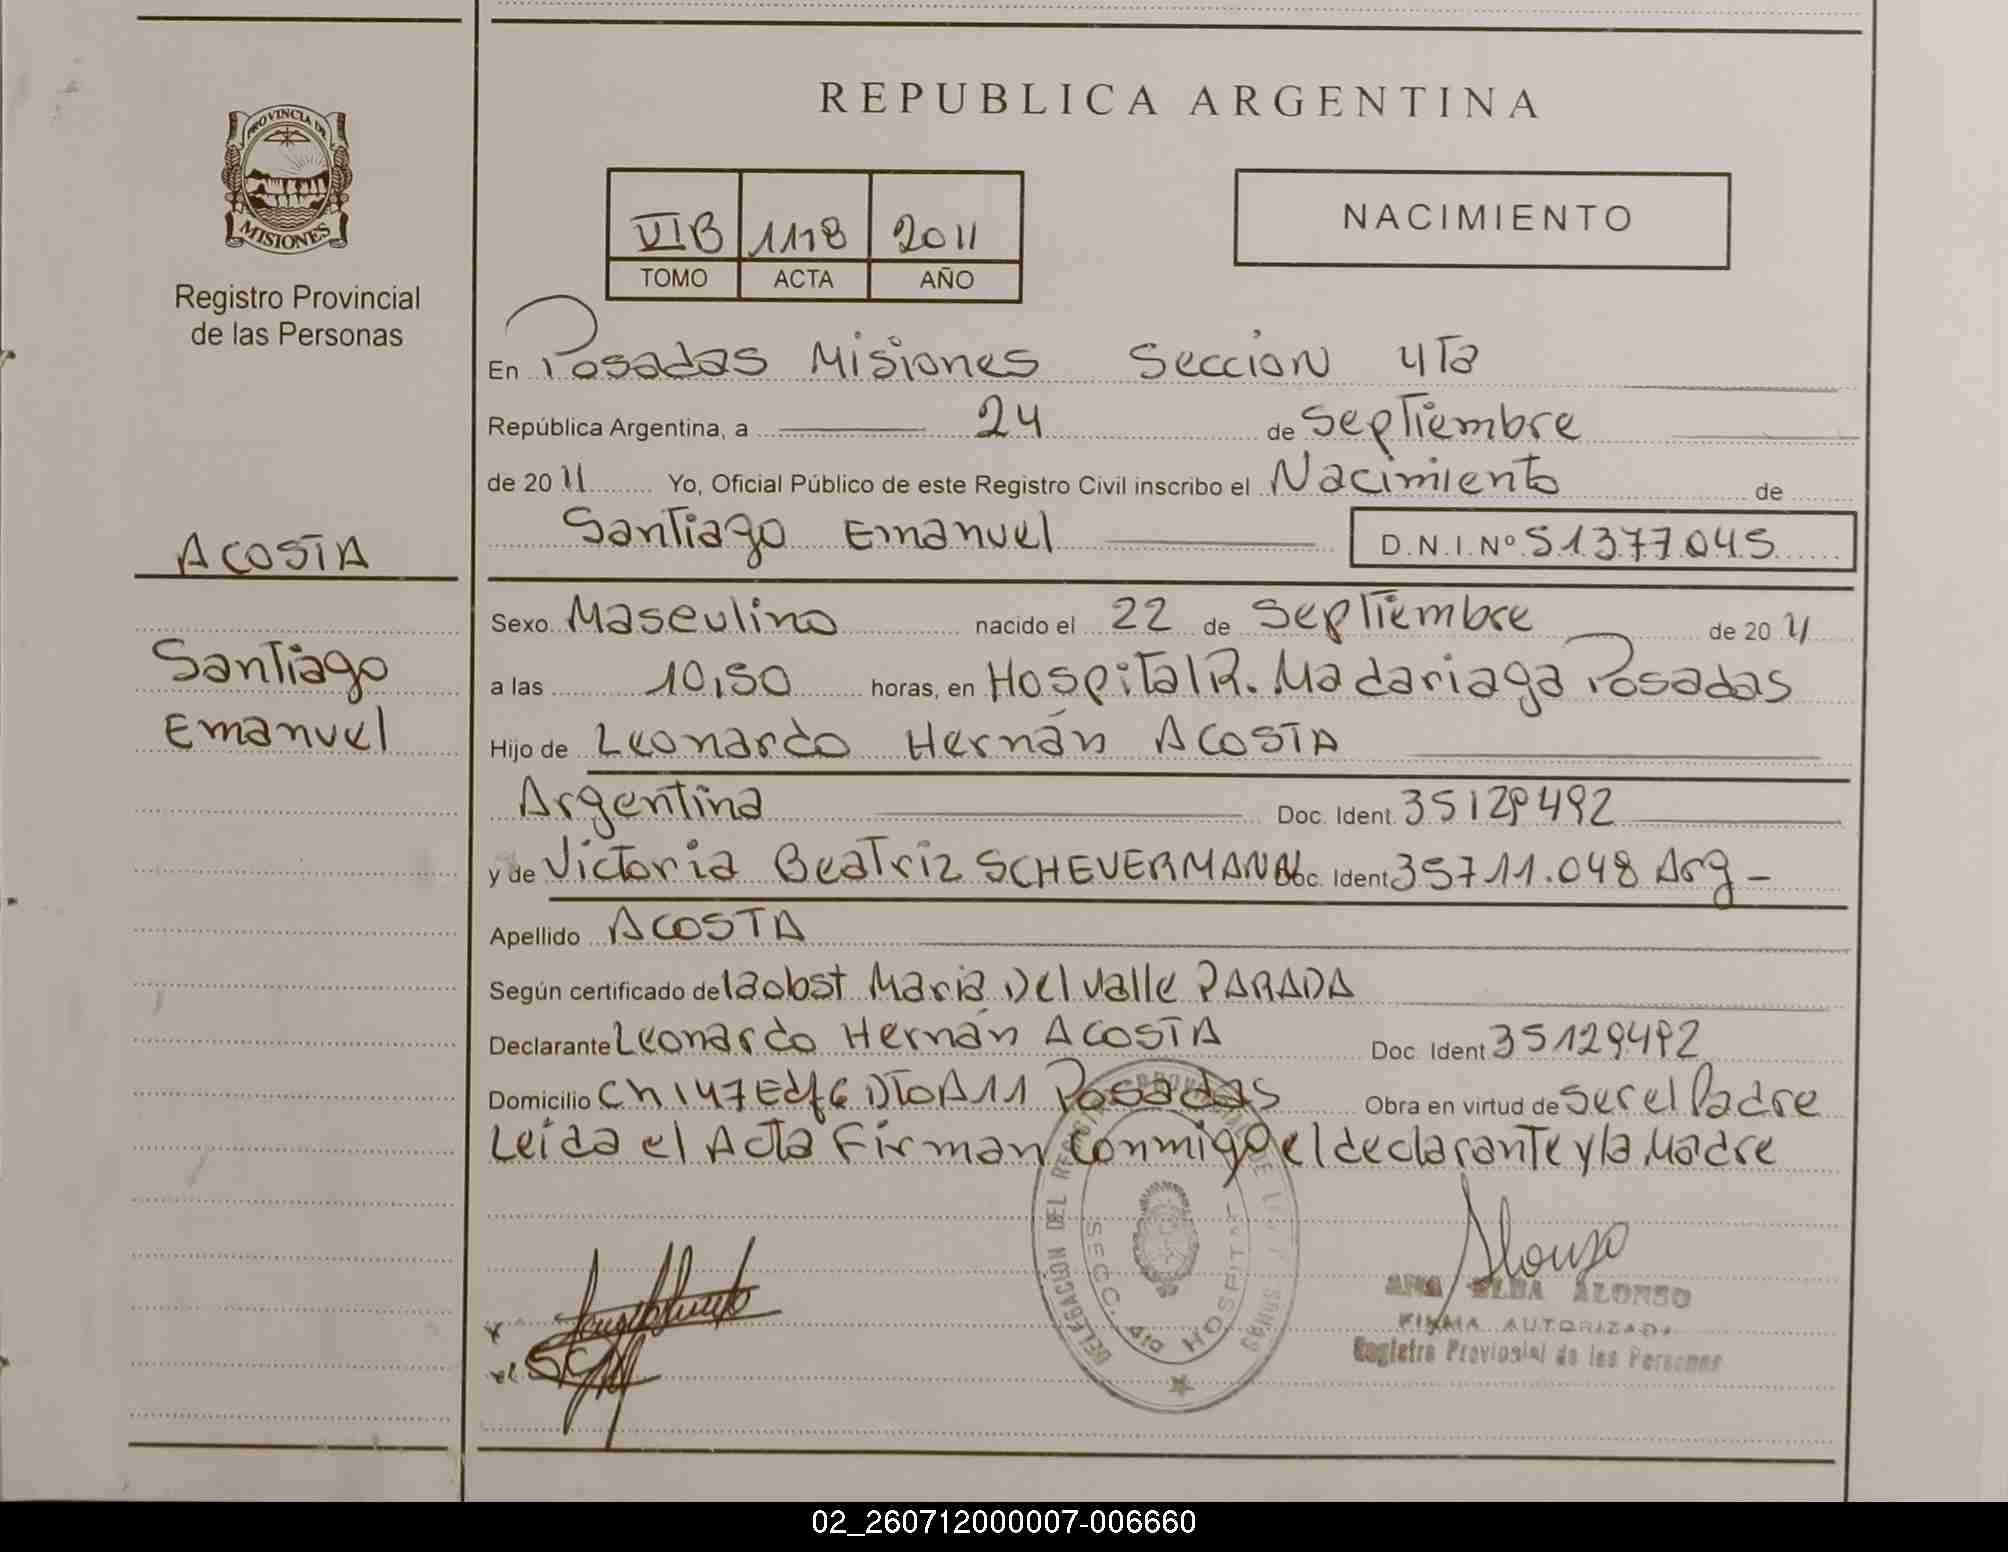 REPUBLICA ARGENTINA
PROVINCIA DE
MISIONES
Registro Provincial
de las Personas
VIB 1118 2011
TOMO ACTA AÑO
NACIMIENTO
En Posadas Misiones Sección 4Ta
República Argentina, a 24 de Septiembre
de 2011 Yo, Oficial Público de este Registro Civil inscribo el Nacimiento de
Santiago Emanuel D.N.I. Nº 51377045
ACOSTA
Santiago
Emanuel
Sexo Masculino nacido el 22 de Septiembre de 2011
a las 10,50 horas, en Hospital R. Madariaga Posadas
Hijo de Leonardo Hernán ACOSTA
Argentina Doc. Ident. 35129492
y de Victoria Beatriz SCHEVERMANN Doc. Ident 35711.048 Arg -
Apellido ACOSTA
Según certificado de la obst Maria Del Valle PARADA
Declarante Leonardo Hernán ACOSTA Doc. Ident. 35129492
Domicilio Ch 147 Edf 6 DTO A11 Posadas Obra en virtud de Ser el Padre
Leída el Acta Firman Conmigo el declarante y la Madre
DELEGACION DEL REGISTRO PROVINCIAL DE LAS PERSONAS
SECC. HOSPITAL
Alonso
ANA ELBA ALONSO
FIRMA AUTORIZADA
Registro Provincial de las Personas
02_260712000007-006660